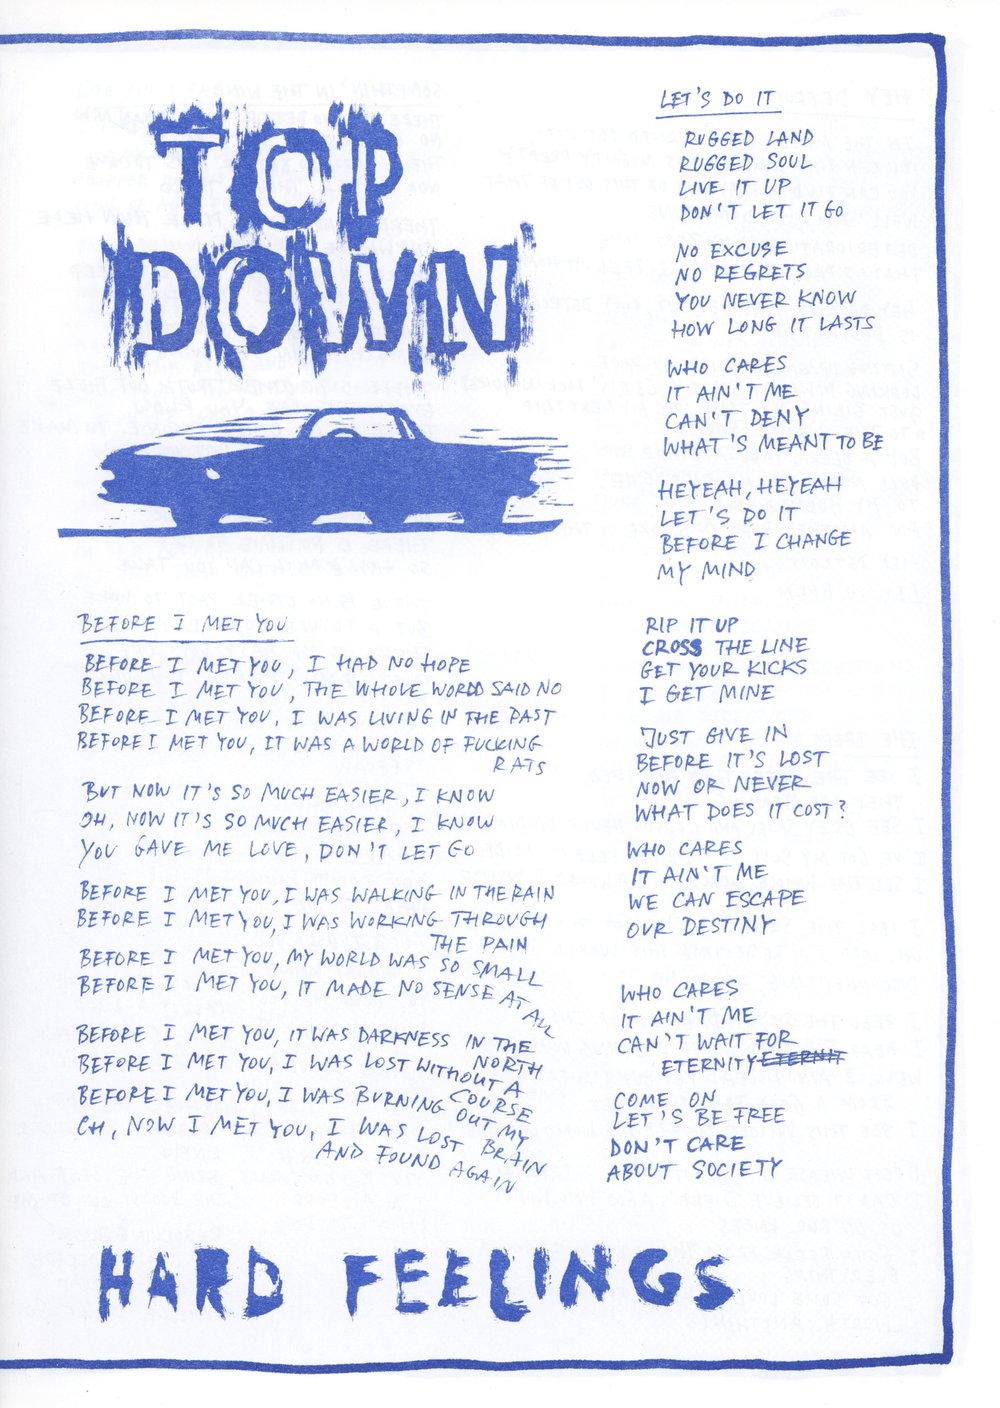 TOP
DOWN
BEFORE I MET YOU
BEFORE I MET YOU, I HAD NO HOPE
BEFORE I MET YOU, THE WHOLE WORLD SAID NO
BEFORE I MET YOU, I WAS LIVING IN THE PAST
BEFORE I MET YOU, IT WAS A WORLD OF FUCKING
RATS
BUT NOW IT'S SO MUCH EASIER, I KNOW
OH, NOW IT'S SO MUCH EASIER, I KNOW
YOU GAVE ME LOVE, DON'T LET GO
BEFORE I MET YOU, I WAS WALKING IN THE RAIN
BEFORE I MET YOU, I WAS WORKING THROUGH
THE PAIN
BEFORE I MET YOU, MY WORLD WAS SO SMALL
BEFORE I MET YOU, IT MADE NO SENSE AT ALL
BEFORE I MET YOU, IT WAS DARKNESS IN THE
NORTH
BEFORE I MET YOU, I WAS LOST WITHOUT A
COURSE
BEFORE I MET YOU, I WAS BURNING OUT MY
BRAIN
OH, NOW I MET YOU, I WAS LOST
AND FOUND AGAIN
LET'S DO IT
RUGGED LAND
RUGGED SOUL
LIVE IT UP
DON'T LET IT GO
NO EXCUSE
NO REGRETS
YOU NEVER KNOW
HOW LONG IT LASTS
WHO CARES
IT AIN'T ME
CAN'T DENY
WHAT'S MEANT TO BE
HEYEAH, HEYEAH
LET'S DO IT
BEFORE I CHANGE
MY MIND
RIP IT UP
CROSS THE LINE
GET YOUR KICKS
I GET MINE
JUST GIVE IN
BEFORE IT'S LOST
NOW OR NEVER
WHAT DOES IT COST?
WHO CARES
IT AIN'T ME
WE CAN ESCAPE
OUR DESTINY
WHO CARES
IT AIN'T ME
CAN'T WAIT FOR
ETERNITY ETERNIT
COME ON
LET'S BE FREE
DON'T CARE
ABOUT SOCIETY
HARD FEELINGS